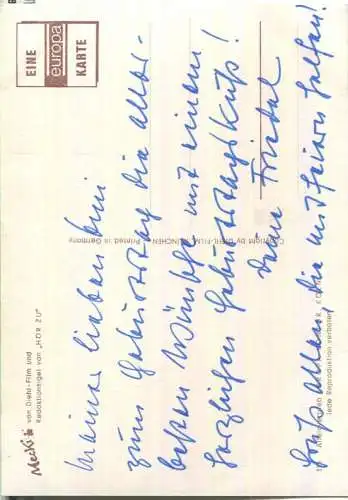 EINE
europa
KARTE
Mecki
von Diehl-Film und
Redaktionsigel von „HÖR ZU"
Copyright by DIEHL-FILM, MÜNCHEN - Printed in Germany
Jede Reproduktion verboten
Meiner lieben
zum Geburtstag die aller-
besten Wünsche mit einem
herzlichen Geburtstagskuß!
Deine Friedel
allen, die mitfeiern helfen!